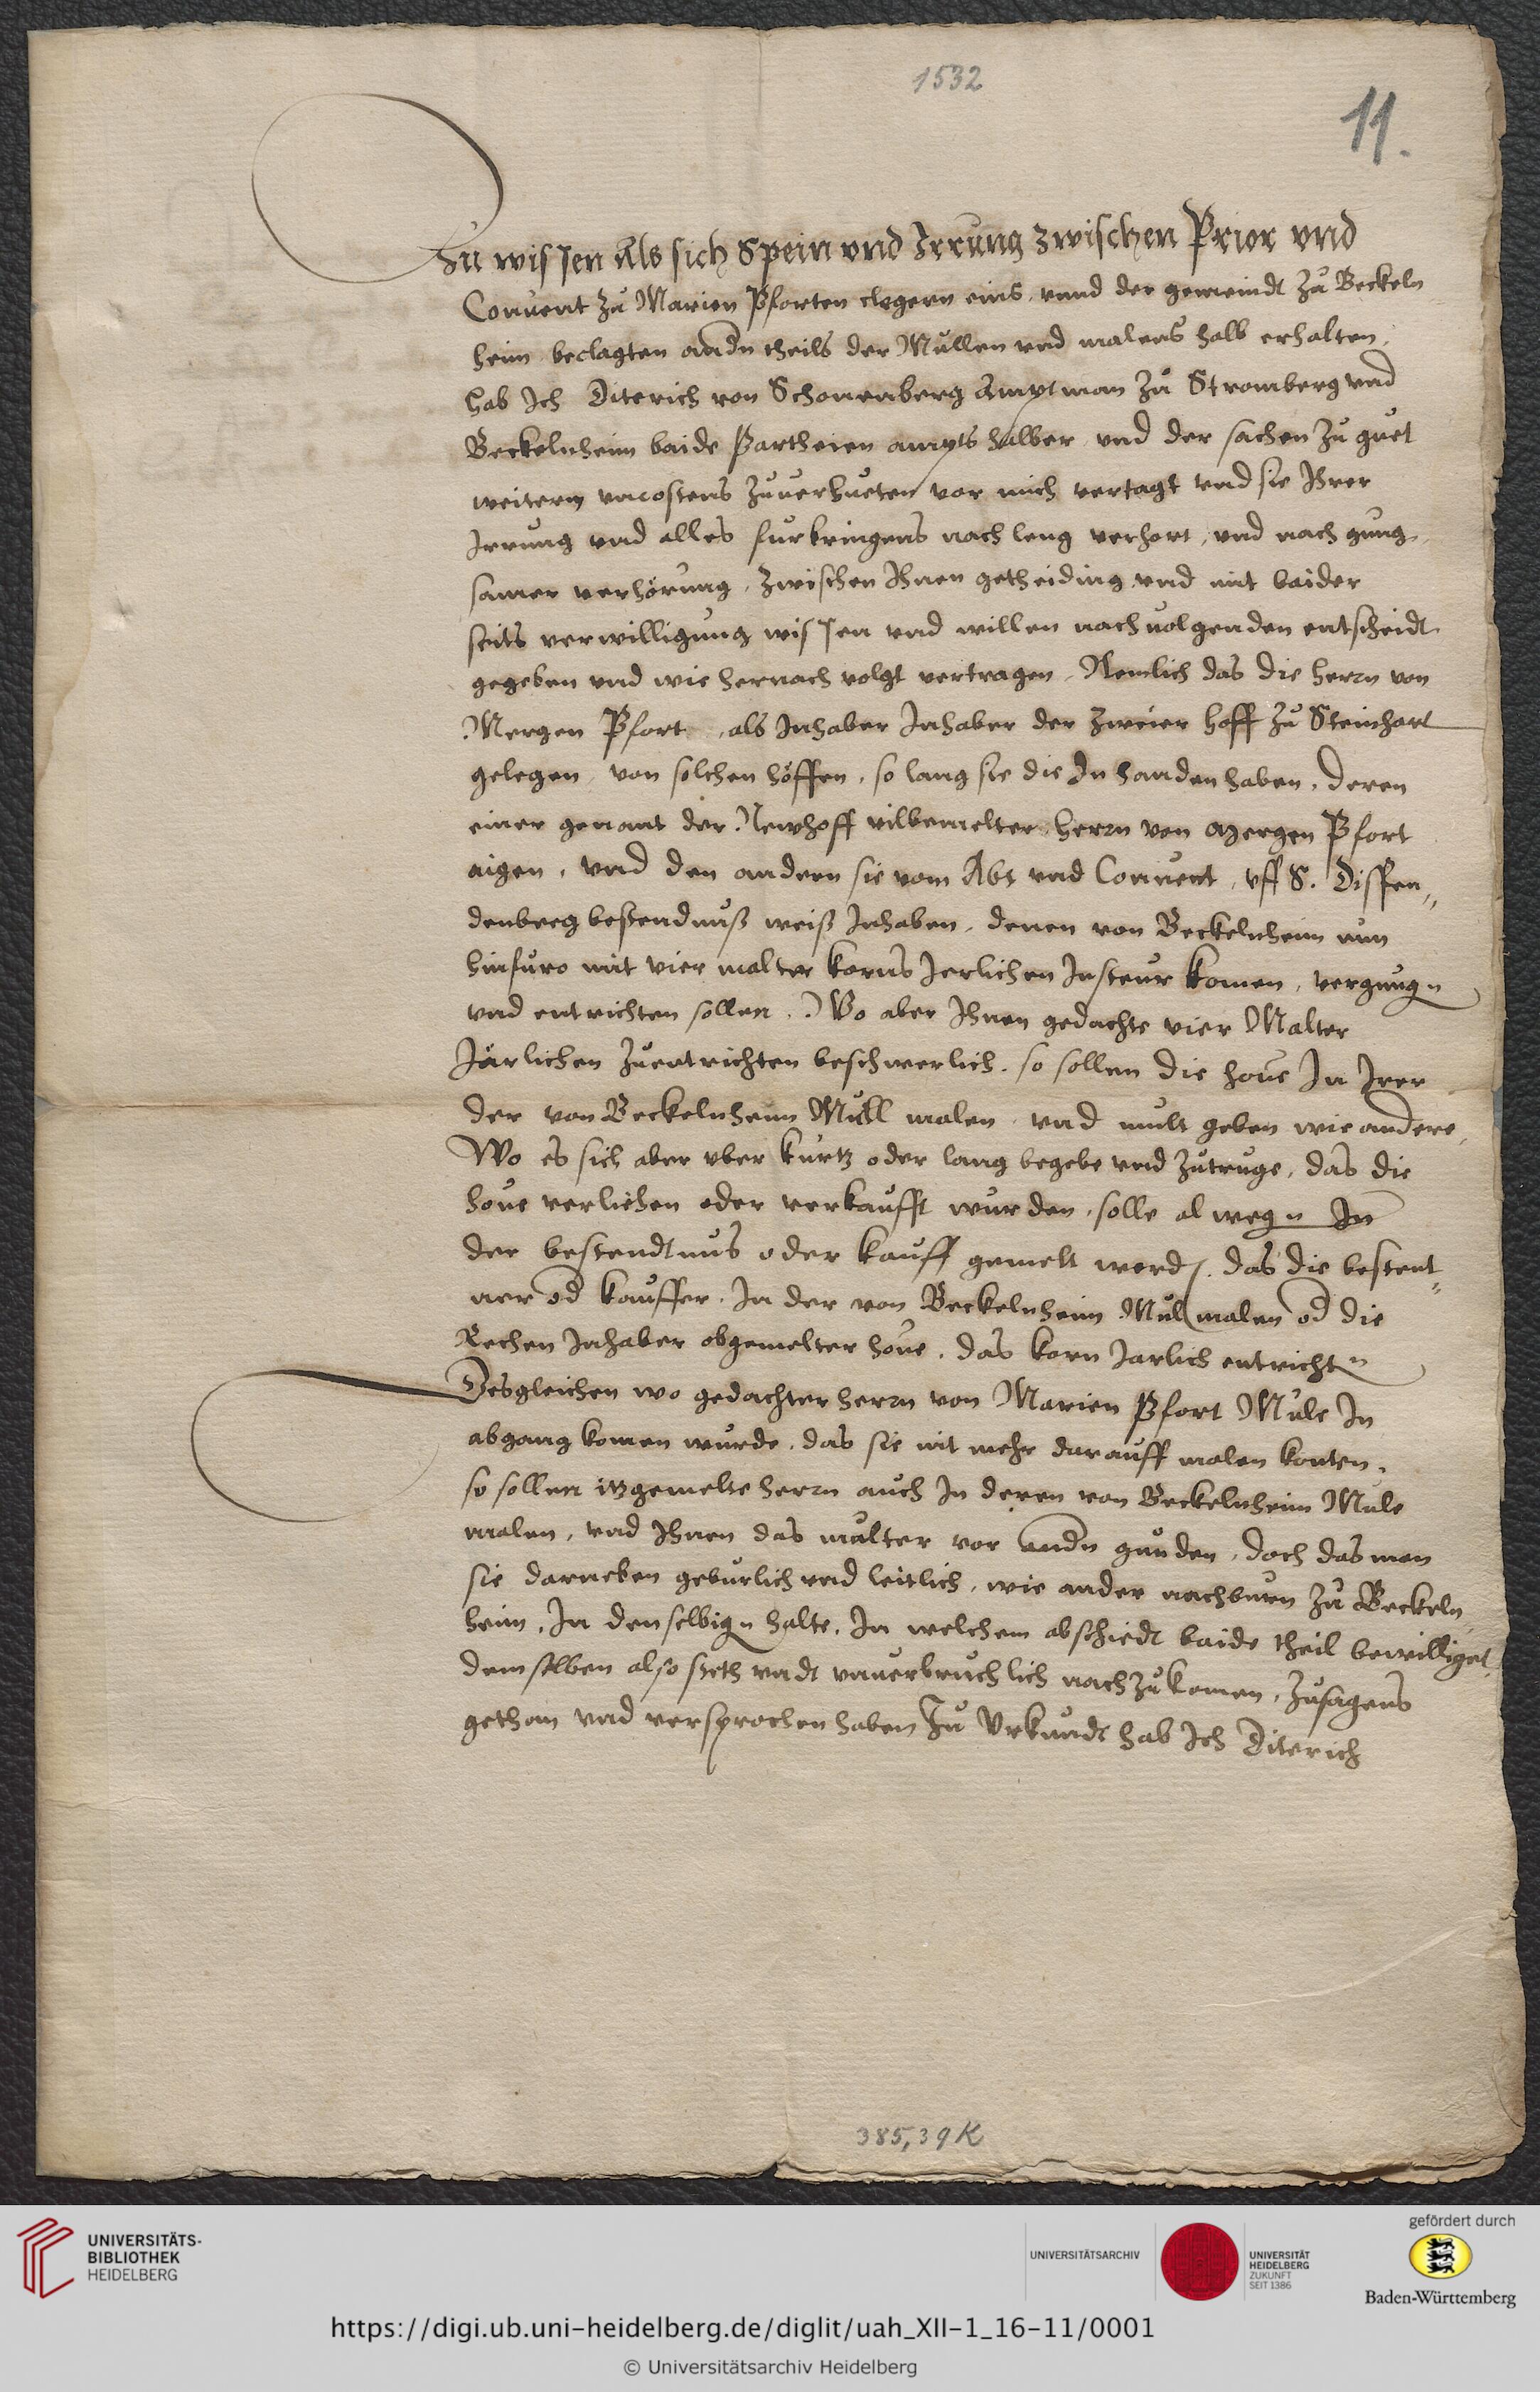 1532
11.
Zu wissen Als sich Spein vnd Irrung zwischen Prior vnd
Conuent zu Marien Pforten clegern eins, vnnd der gemeindt zu Beckeln
heim beclagten andn theils der Mullen vnd malens halb erhalten,
hab Ich Diterich von Schonenberg Amptman zu Stromberg vnd
Beckelnheim baide Partheien ampts halber vnd der sachen zu guet
weitern vncostens zuuerhueten vor mich vertagt vnd sie Irer
Irrung vnd alles furbringens nach leng verhort, vnd nach gnug
samer verhörung, zwischen Ihnen getheiding vnd mit baider
seits verwilligung wissen vnd willen nachuolgenden entscheidt
gegeben vnd wie hernach volgt vertragen, Nemlich das die herrn von
Mergen Pfort, als Inhaber Inhaber der zweier hoff zu Steinhart
gelegen, von solchen höffen, so lang sie die In handen haben, deren
einer genant der Newhoff vilbemelter herrn von Mergen Pfort
aigen, vnd den andern sie vom Abt vnd Conuent, vff S. Dissen„
denberg bestendnuß weiß Inhaben, denen von Beckelnheim nun
hinfuro mit vier malter korns Jerlichen Insteur komen, vergnugn
vnd entrichten sollen. Wo aber Ihnen gedachte vier Malter
Järlichen zuentrichten beschwerlich, so sollen die houe In Irer
der von Beckelnheim Mull malen vnd mult geben wie andere,
Wo es sich aber vber kurtz oder lang begebe vnd zutruge, das die
houe verliehen oder verkaufft wurden, solle alwegn In
der bestendtnus oder kauff gemelt werd, das die bestent„
ner od kauffer, In der von Beckelnheim Mul malen od die
Rechen Inhaber obgemelter houe, das korn Jarlich entrichtn
Desgleichen wo gedachter herrn von Marien Pfort Mule In
abgang komen wurde, das sie nit mehr darauff malen konten,
so sollen itzgemelte herrn auch In deren von Beckelnheim Mule
malen, vnd Ihnen das multer vor andn gunden, doch das man
sie darneben geburlich vnd leitlich, wie ander nachburn zu Beckeln
heim, In denselbign halte, In welchem abschiedt baide theil bewilliget
demselben also steth vndt vnuerbruchlich nachzukomen, zusagens
gethan vnd versprochen haben Zu Vrkundt hab Ich Diterich
385,39K
UNIVERSITÄTS-
BIBLIOTHEK
HEIDELBERG
UNIVERSITÄTSARCHIV
UNIVERSITÄT
HEIDELBERG
ZUKUNFT
SEIT 1386
gefördert durch
Baden-Württemberg
https://digi.ub.uni-heidelberg.de/diglit/uah_XII-1_16-11/0001
© Universitätsarchiv Heidelberg